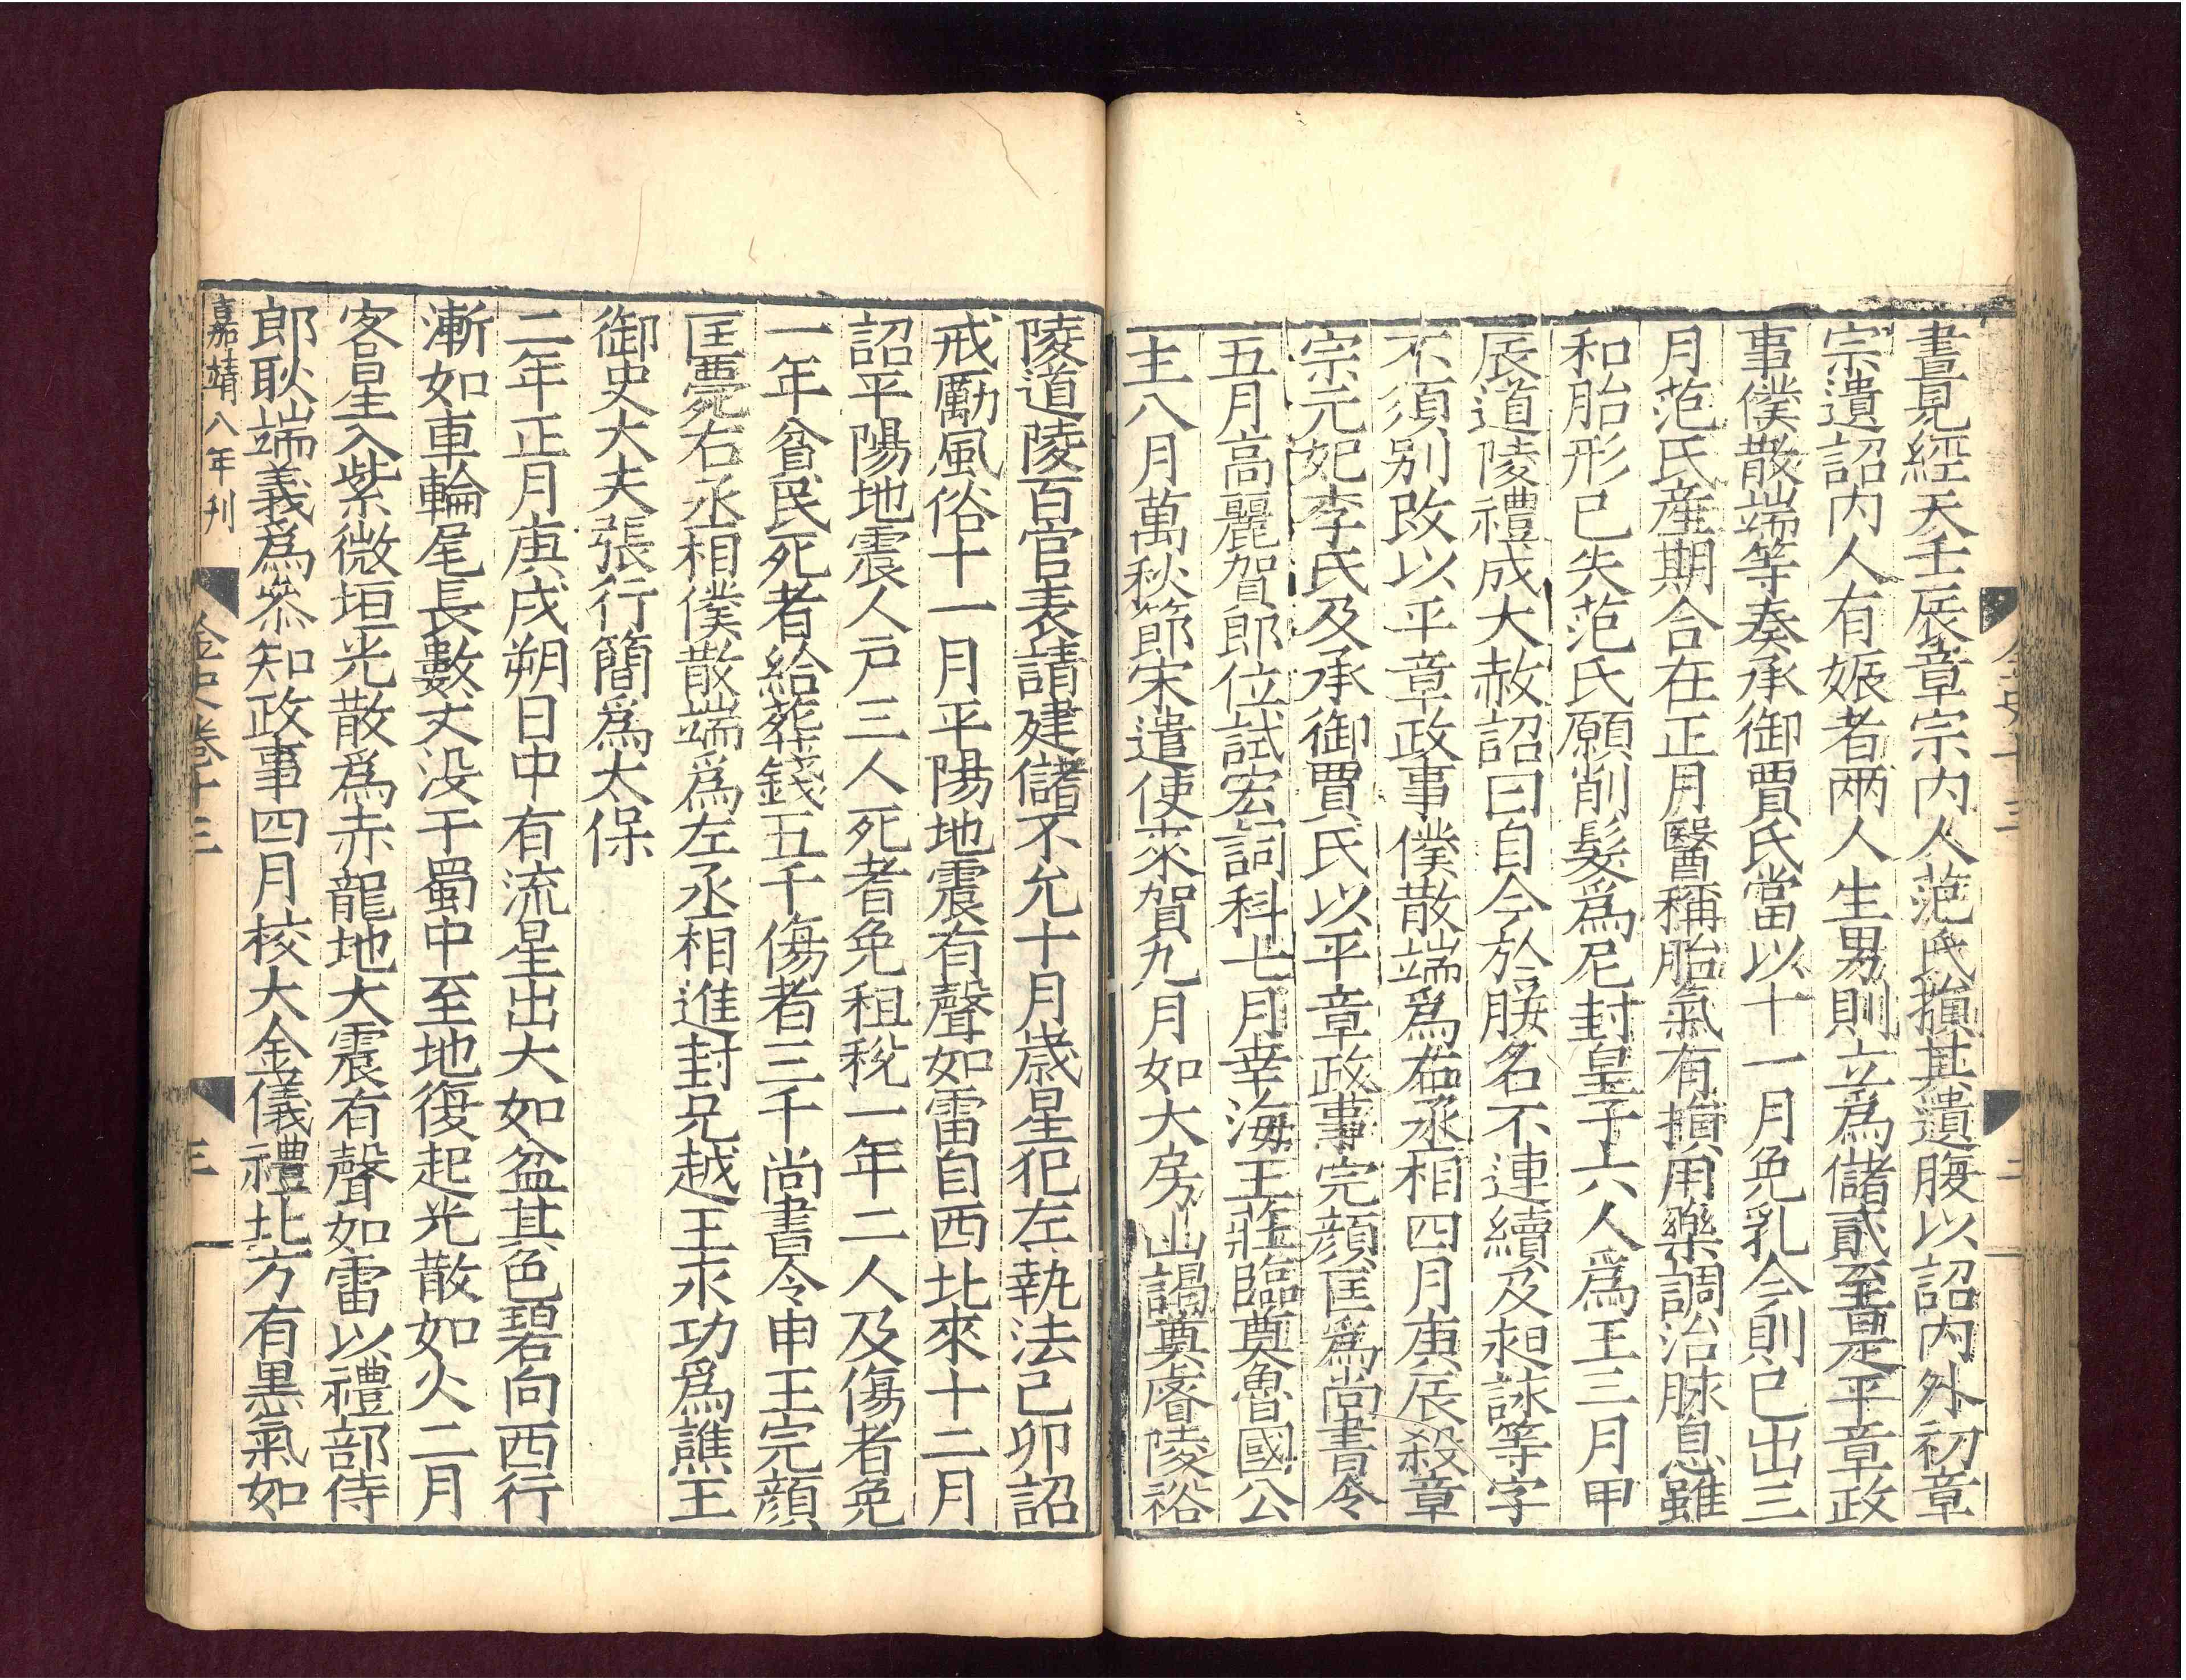 晝見經天壬辰章宗内人范氏損其遺腹以詔内外初章
宗遺詔内人有娠者兩人生男則立爲儲貳至是平章政
事僕散端等奏承御賈氏當以十一月免乳今則已出三
月范氏産期合在正月醫稱胎氣有損用藥調治脉息雖
和胎形已失范氏願削髮爲尼封皇子六人爲王三月甲
辰道陵禮成大赦詔曰自今於朕名不連續及昶詠等字
不須别改以平章政事僕散端爲右丞相四月庚辰殺章
宗元妃李氏及承御賈氏以平章政事完顔匡爲尚書令
五月高麗賀即位試宏詞科七月幸海王莊臨奠魯國公
主八月萬秋節宋遣使來賀九月如大房山謁奠睿陵裕
陵道陵百官表請建儲不允十月歳星犯左執法己卯詔
戒勵風俗十一月平陽地震有聲如雷自西北來十二月
詔平陽地震人戸三人死者免租稅一年二人及傷者免
一年貧民死者給葬錢五千傷者三千尚書令申王完顔
匡薨右丞相僕散端爲左丞相進封兄越王永功爲譙王
御史大夫張行簡爲太保
二年正月庚戌朔日中有流星出大如盆其色碧向西行
漸如車輪尾長數丈没于蜀中至地復起光散如火二月
客星入紫微垣光散爲赤龍地大震有聲如雷以禮部侍
郎耿端義爲叅知政事四月校大金儀禮北方有黑氣如
嘉靖八年刋
金史卷十三
三